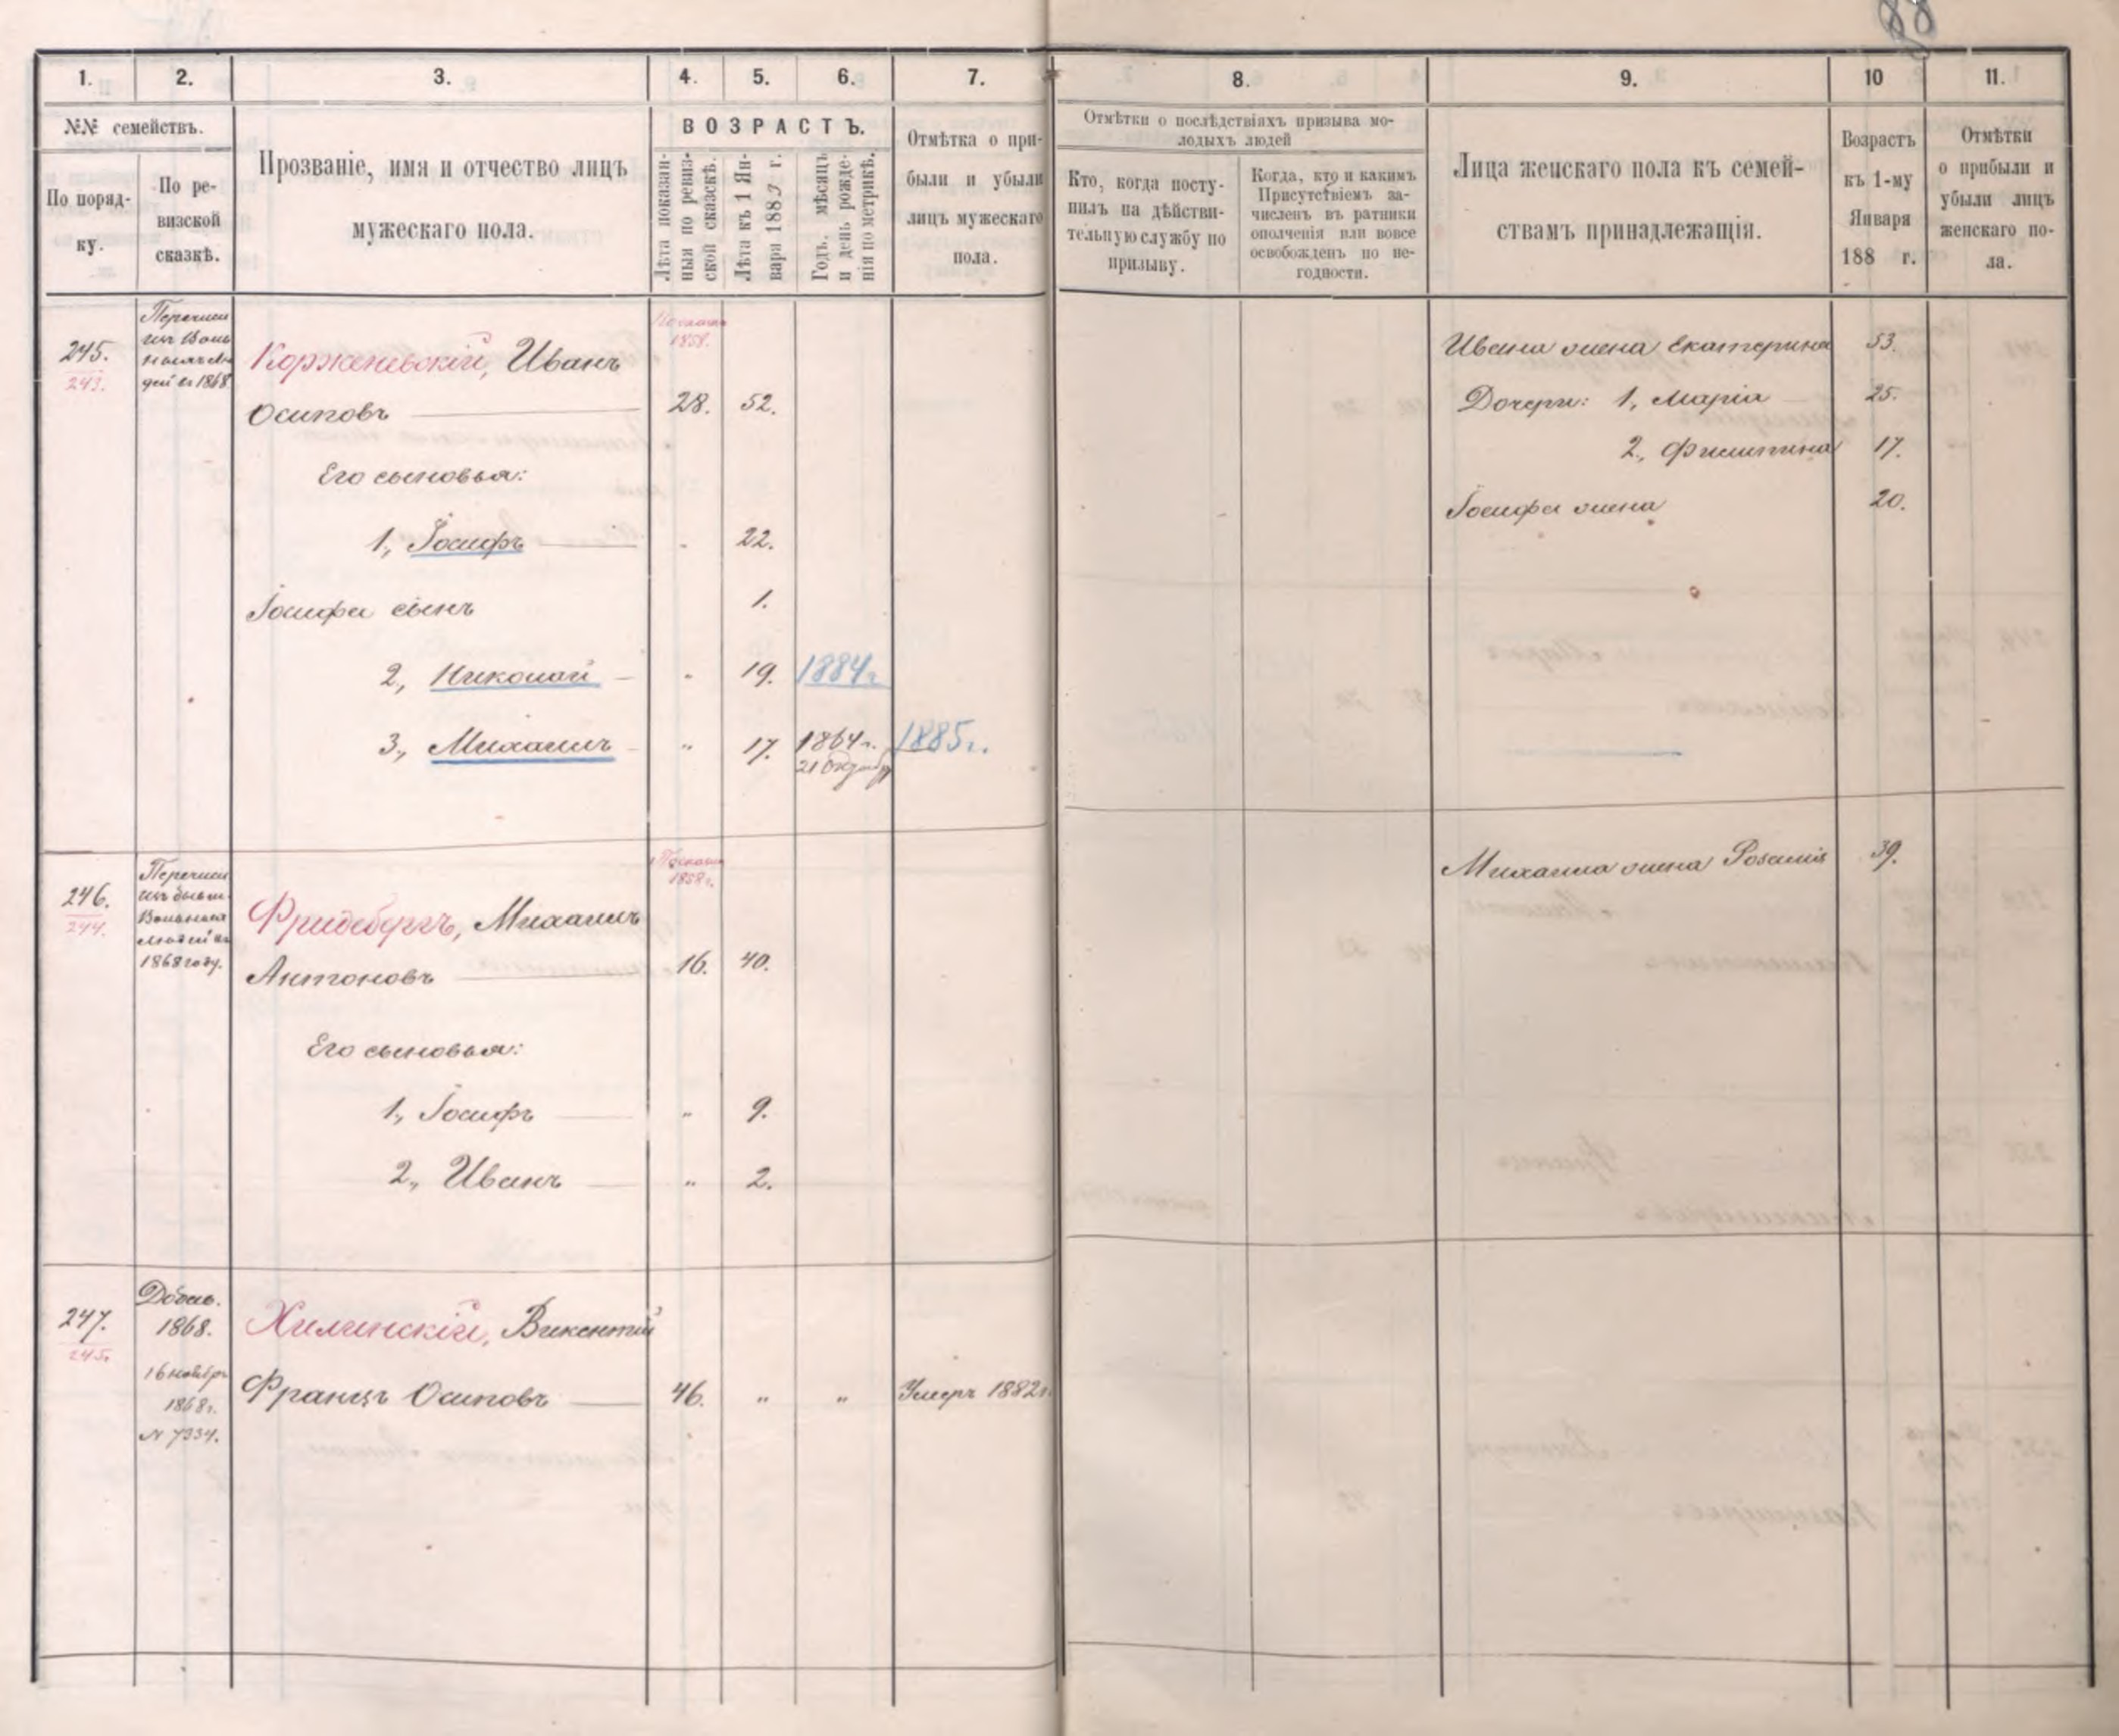 88
1. 2. 3. 4. 5. 6. 7. 8. 9. 10 11.
№№ семействъ.
По поряд-
ку.
По ре-
визской
сказкѣ.
Прозваніе, имя и отчество лицъ
мужескаго пола.
ВОЗРАСТЪ.
Лѣта показан-
ныя по ревиз-
ской сказкѣ.
Лѣта къ 1 Ян-
варя 1883 г.
Годъ, мѣсяцъ
и день рожде-
нія по метрикѣ.
Отмѣтка о при-
были и убыли
лицъ мужескаго
пола.
Отмѣтки о послѣдствіяхъ призыва мо-
лодыхъ людей
Кто, когда посту-
пилъ на дѣйстви-
тельную службу по
призыву.
Когда, кто и какимъ
Присутствіемъ за-
численъ въ ратники
ополченія или вовсе
освобожденъ по не-
годности.
Лица женскаго пола къ семей-
ствамъ принадлежащія.
Возрастъ
къ 1-му
Января
188 г.
Отмѣтки
о прибыли и
убыли лицъ
женскаго по-
ла.
245.
243.
Перечисл
изъ Воль
ныхъ Лю
дей въ 1868
1858.
Корженевскій, Иванъ
Осиповъ 28. 52.
Его сыновья:
1, Іосифъ 22.
Іосифа сынъ 1.
2, Николай " 19. 1884 г.
3, Михаилъ " 17. 1864 г. 1885 г.
21 Октября
Ивана жена Екатерина 53.
Дочери: 1, Марія 25.
2, Филипина 17.
Іосифа жена 20.
246.
244.
Перечисл
изъ бывш.
Вольныхъ
людей въ
1868 году.
1858 г.
Фридебергъ, Михаилъ
Антоновъ 16. 40.
Его сыновья:
1, Іосифъ " 9.
2, Иванъ " 2.
Михаила жена Розалія 39.
247.
245.
Добав.
1868.
16 ноября
1868 г.
N 7334.
Хилинскій, Викентій
Францъ Осиповъ 46. " " Умеръ 1882 г.